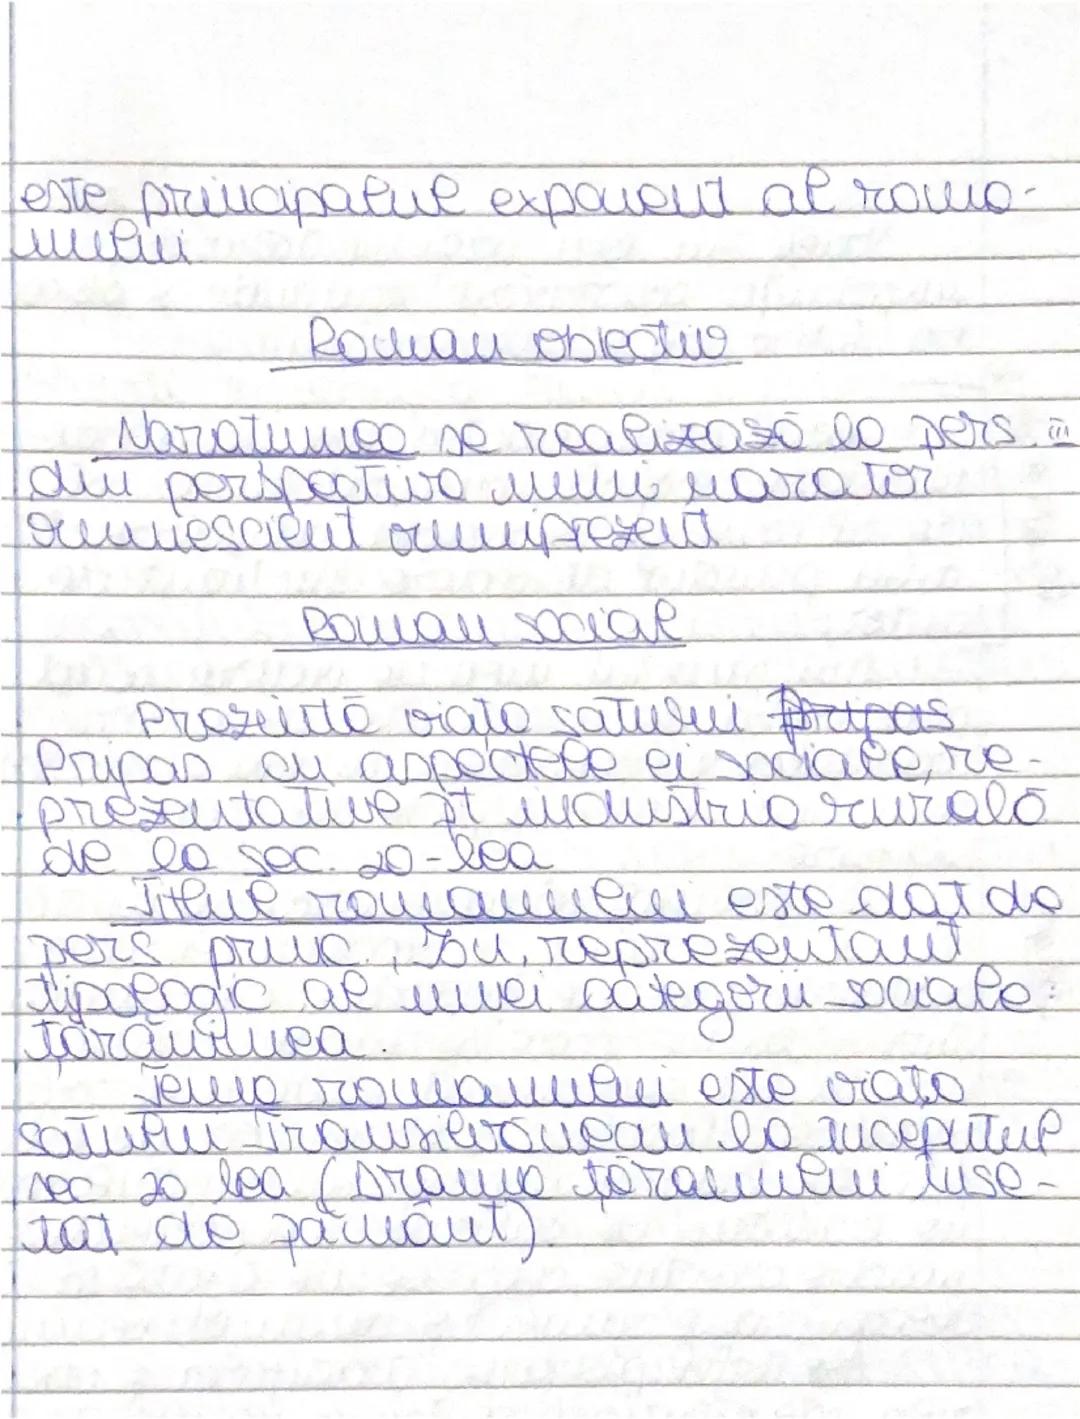 este principalul exponent al roma-
nului
Roman obiectiv
Naratiunea se realizează la pers. III
din perspectiva unui narator
omniescient omniprezent
Roman social
Prezintă viata satului Pripas
Pripas cu aspectele ei sociale, re-
prezentative pt industria rurală
de la sec. 20-lea
Titlul romanului este dat de
pers princ., Ion, reprezentant
tipologic al unei categorii sociale:
țărănimea.
Tema romanului este viata
satului Transilvănean la începutul
sec 20 lea (Drama țăranului înse-
tat de pământ).